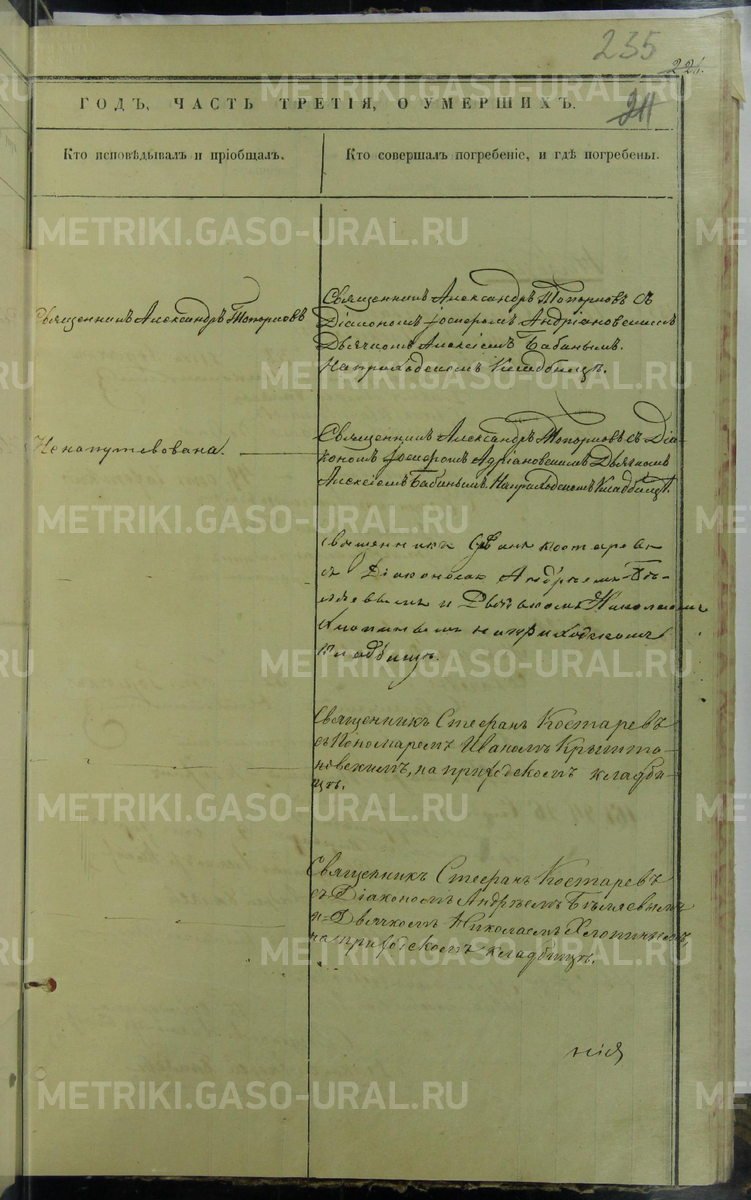 235
221.
211
ГОДЪ, ЧАСТЬ ТРЕТІЯ, О УМЕРШИХЪ.
Кто исповѣдывалъ и пріобщалъ.
Кто совершалъ погребеніе, и гдѣ погребены.
Священникъ Александръ Топорковъ
Священникъ Александръ Топорковъ съ
Діакономъ Іосифомъ Андріановскимъ
Дьячкомъ Алексіемъ Бабинымъ.
На приходскомъ кладбищѣ.
Ненапутствована.
Священникъ Александръ Топорковъ съ Діа-
кономъ Іосифомъ Адріановскимъ Дьячкомъ
Алексіемъ Бабинымъ. На приходскомъ Кладбищѣ.
священникъ Костаревъ
съ Діакономъ Андреемъ Бѣ-
ляевымъ и Дьячкомъ Николаемъ
Хлопинымъ на приходскомъ
кладбищѣ.
Священникъ Стефанъ Костаревъ
съ Пономаремъ Иваномъ Крышта-
новскимъ, на приходскомъ кладби-
щѣ.
Священникъ Стефанъ Костаревъ
съ Діакономъ Андреемъ Бѣляевымъ
и Дьячкомъ Николаемъ Хлопинымъ,
на приходскомъ кладбищѣ.
нія
METRIKI.GASO-URAL.RU